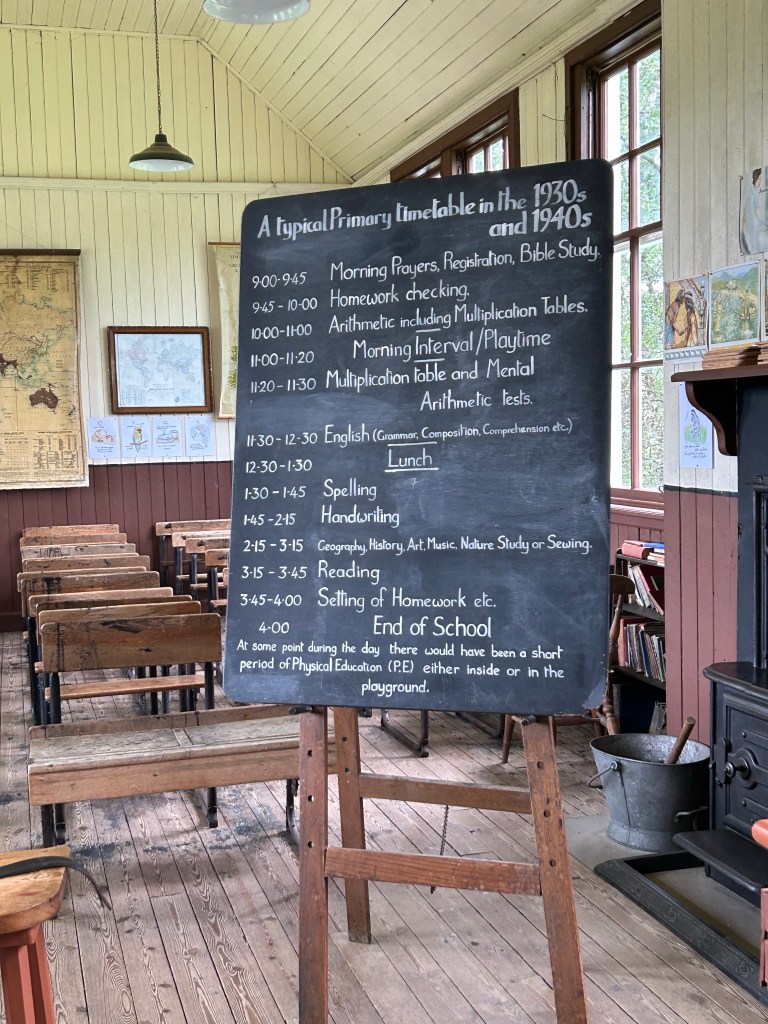 A typical Primary timetable in the 1930s
and 1940s
9.00-9.45 Morning Prayers, Registration, Bible Study.
9.45 - 10.00 Homework checking.
10.00-11.00 Arithmetic including Multiplication Tables.
11.00-11.20 Morning Interval/Playtime
11.20 - 11.30 Multiplication table and Mental
Arithmetic tests.
11.30 - 12.30 English (Grammar, Composition, Comprehension etc.)
12.30 - 1.30 Lunch
1.30 - 1.45 Spelling
1.45 - 2.15 Handwriting
2.15 - 3.15 Geography, History, Art, Music, Nature Study or Sewing.
3.15 - 3.45 Reading
3.45-4.00 Setting of Homework etc.
4.00 End of School
At some point during the day there would have been a short
period of Physical Education (P.E) either inside or in the
playground.